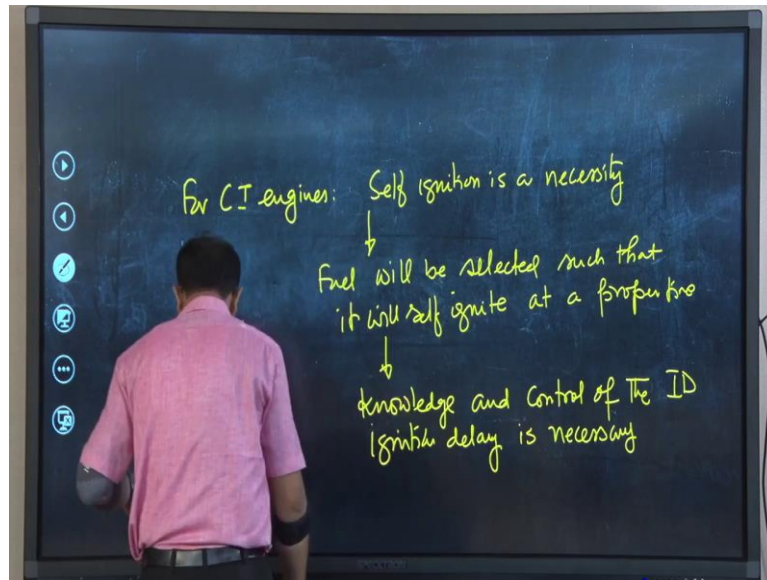 For CI engines: Self ignition is a necessity
Fuel will be selected such that
it will self ignite at a proper
Knowledge and control of The ID
ignition delay is necessary